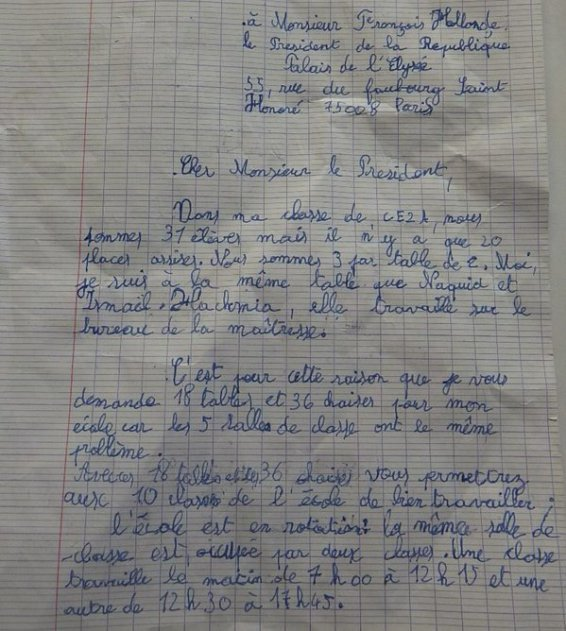 à Monsieur François Hollande
le President de la Republique
Palais de l'Elysé
55, rue du faubourg Saint
Honoré 75008 Paris
Cher Monsieur le President,
Dans ma classe de CE2A, nous
sommes 31 élèves mais il n'y a que 20
places assises. Nous sommes 3 par table de 2. Moi,
je suis à la même table que Naquid et
Ismaël. Hachmia, elle travaille sur le
bureau de la maîtresse.
C'est pour cette raison que je vous
demande 18 tables et 36 chaises pour mon
école car les 5 salles de classe ont le même
problème.
Avec 18 tables et 36 chaises vous permettrez
aux 10 classes de l'école de bien travailler;
l'école est en rotation: la même salle de
classe est occupée par deux classes. Une classe
travaille le matin de 7h00 à 12h15 et une
autre de 12h30 à 17h45.